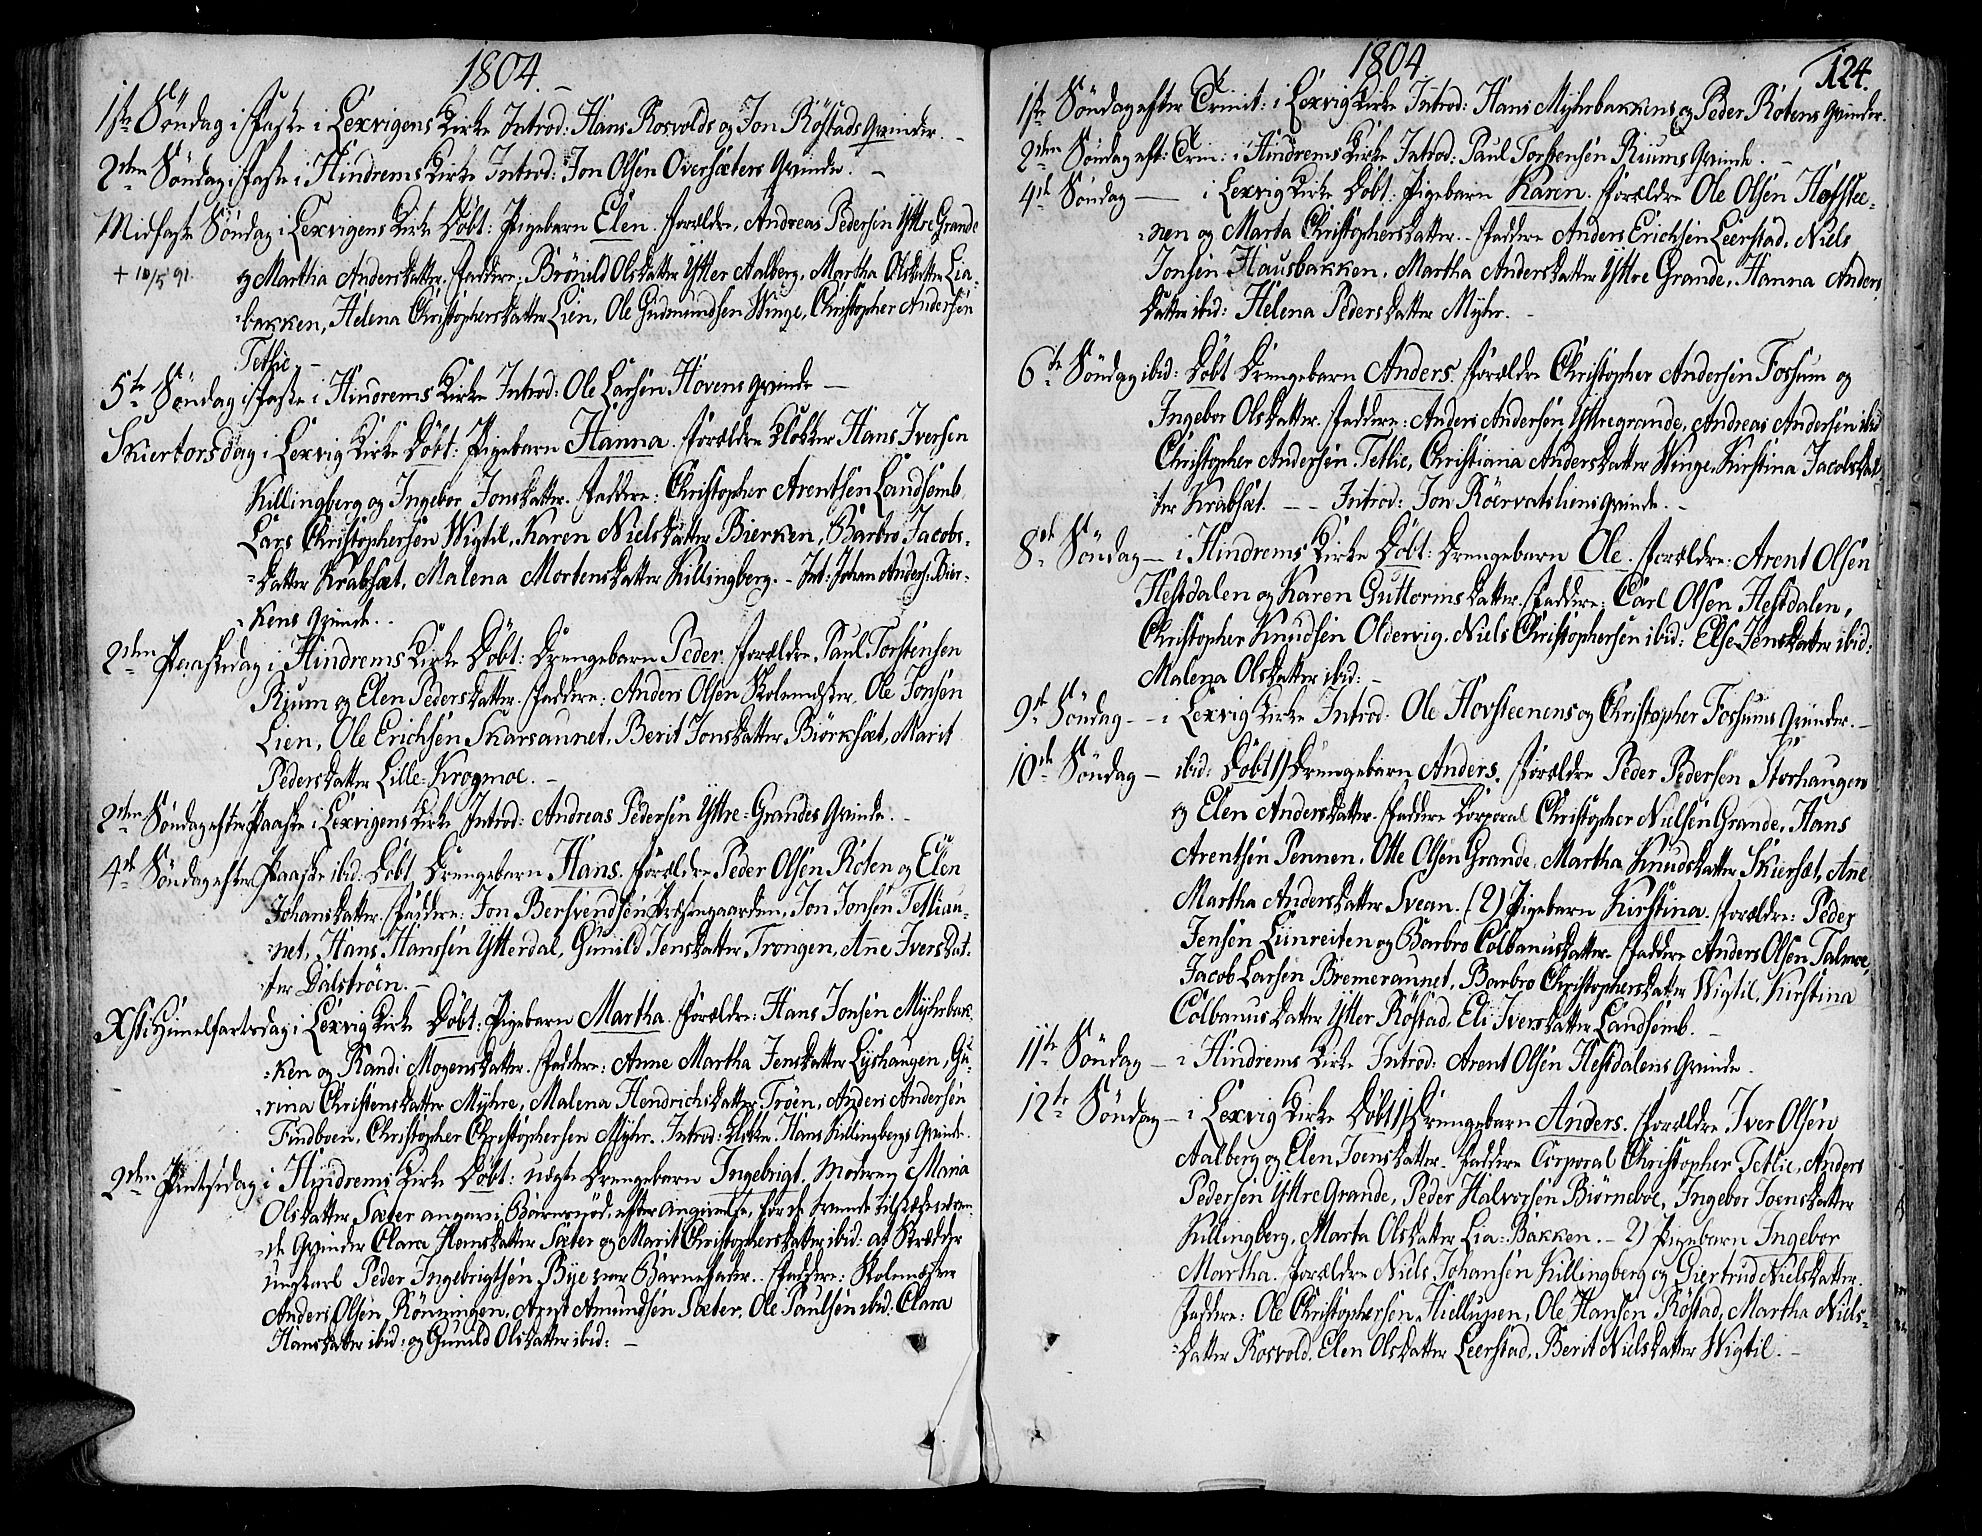 1804.
1ste Söndag i Faste i Lexvigens Kirke Introd: Hans Rosvolds og Jon Röstads Qvinder.
2den Söndag i Faste i Hindrems Kirke Introd: Jon Olsen Oversæters Qvinde.
Midfaste Söndag i Lexvigens Kirke Döbt: Pigebarn Elen. Forældre, Andreas Pedersen Yttre Grande
+ 10/5 91. og Martha Andersdatter. Faddere, Brönild Olsdatter Ytter Aalberg, Martha Olsdatter Lia-
bakken, Helena Christophersdatter Lien, Ole Gudmundsen Winge, Christopher Andersen
Tetlie.
5te Söndag i Faste i Hindrems Kirke Introd: Ole Larsen Hovens Qvinde
Skiertorsdag i Lexvig Kirke Döbt: Pigebarn Hanna. Forældre Klokker Hans Iversen
Killingberg og Ingebor Jonsdatter. Faddere: Christopher Arentsen Landsemb
Lars Christophersen Wigtil, Karen Nielsdatter Bierken, Barbro Jacobs-
datter Krabsæt, Malena Mortensdatter Killingberg. - Int: Johan Anders: Bier-
kens Qvinde.
2den Paaskedag i Hindrems Kirke Döbt: Drengebarn Peder. Forældre, Paul Torstensen
Rium og Elen Pedersdatter. Faddere: Anders Olsen Skolemester, Ole Jonsen
Lien, Ole Erichsen Skarsaunet, Berit Jonsdatter Biörksæt, Marit
Pedersdatter Lille-Krogmoe.
2den Söndag efter Paaske i Lexvigens Kirke Introd: Andreas Pedersen Yttre-Grandes Qvinde.
4de Söndag efter Paaske ibid: Döbt Drengebarn Hans. Forældre Peder Olsen Roten og Elen
Johansdatter. Faddere: Jon Bersvendsen Præsegaarden, Jon Jonsen Tetliau-
net, Hans Hanssen Ytterdal, Gunild Jensdatter Trongen, Ane Iversdat-
ter Dalströen.
Xsti Himelfartsdag i Lexvig Kirke Döbt: Pigebarn Martha. Forældre: Hans Jonsen Myhrbak-
ken og Randi Mogensdatter. Faddere: Anne Martha Jensdatter Lyshaugen, Gu-
rina Christensdatter Myhre, Malena Hendrichsdatter Tröen, Anders Andersen
Findboen, Christopher Christophersen Myhr. Introd: Klokker Hans Killingbergs Qvinde.
2den Pintsedag i Hindrems Kirke Döbt: uægte Drengebarn Ingebrigt. Moderen Maria
Olsdatter Sæter angav i Barnsnöd, efter Angivelse, for de tvende tilstedeværen-
de Qvinder Clara Hansdatter Sæter og Marit Christophersdatter ibid: at Skredder
ungkarl Peder Ingebrigtsen Bye var Barnefader. Faddere: Skolemester
Anders Olsen Rönningen, Arnt Amundsen Sæter, Ole Paulsen ibid: Clara
Hansdatter ibid: og Gunild Olsdatter ibid:
1804
124.
1ste Söndag efter Trinit: i Lexvig Kirke Introd: Hans Myhrbakkens og Peder Rotens Qvinder.
2den Söndag eft: Trin: i Hindrems Kirke Introd: Paul Torstensen Riums Qvinde.
4de Söndag — i Lexvig Kirke Döbt: Pigebarn Karen. Forældre Ole Olsen Hofstee-
nen og Marta Christophersdatter. Faddere Anders Erichsen Leerstad, Niels
Jonsen Hausbakken, Martha Andersdatter Yttre Grande, Hanna Anders
datter ibid: Helena Pedersdatter Myhr.
6te Söndag ibid: Döbt Drengebarn Anders. Forældre Christopher Andersen Fossum og
Ingebor Olsdatter. Faddere: Anders Andersen Yttregrande, Andreas Andersen ibid
Christopher Andersen Tetlie, Christiana Andersdatter Winge, Kirstina Jacobsdat-
ter Krabsæt. - - Introd: Jon Röervatsliens Qvinde.
8de Söndag - i Hindrems Kirke Döbt: Drengebarn Ole. Forældre: Arent Olsen
Hestdalen og Karen Guttormsdatter. Faddere: Carl Olsen Hestdalen,
Christopher Knudsen Oldervig, Niels Christophersen ibid: Else Jensdatter ibid:
Malena Olsdatter ibid:
9de Söndag - - i Lexvig Kirke Introd: Ole Hovsteenens og Christopher Fossums Qvinder.
10de Söndag - ibid: Döbt 1) Drengebarn Anders. Forældre Peder Pedersen Storhaugen
og Elen Andersdatter. Faddere Corporal Christopher Nielsen Grande, Hans
Arentsen Pennen, Otte Olsen Grande, Martha Knudsdatter Skiersæt, Ane
Martha Andersdatter Svean. (2) Pigebarn Kirstina. Forældre: Peder
Jensen Liinreiten og Barbro Colbanusdatter. Faddere Anders Olsen Talmoe,
Jacob Larsen Bremeraunet, Barbro Christophersdatter Wigtil, Kirstina
Colbanusdatter Ytter Röstad, Eli Iversdatter Landsemb.
11te Söndag - i Hindrems Kirke Introd: Arent Olsen Hestdalens Qvinde.
12te Söndag - i Lexvig Kirke Döbt 1) Drengebarn Anders. Forældre Iver Olsen
Aalberg og Elen Joensdatter. Faddere Corporal Christopher Tetlie, Anders
Pedersen Yttre Grande, Peder Halvorsen Biörneboe, Ingebor Joensdatter
Killingberg, Marta Olsdatter Lia-Bakken. - 2) Pigebarn Ingebor
Martha. Forældre Niels Johansen Killingberg og Giertrud Nielsdatter.
Faddere: Ole Christophersen Hiellupen, Ole Hansen Röstad, Martha Niels-
datter Rosvold, Elen Olsdatter Leerstad, Berit Nielsdatter Wigtil.